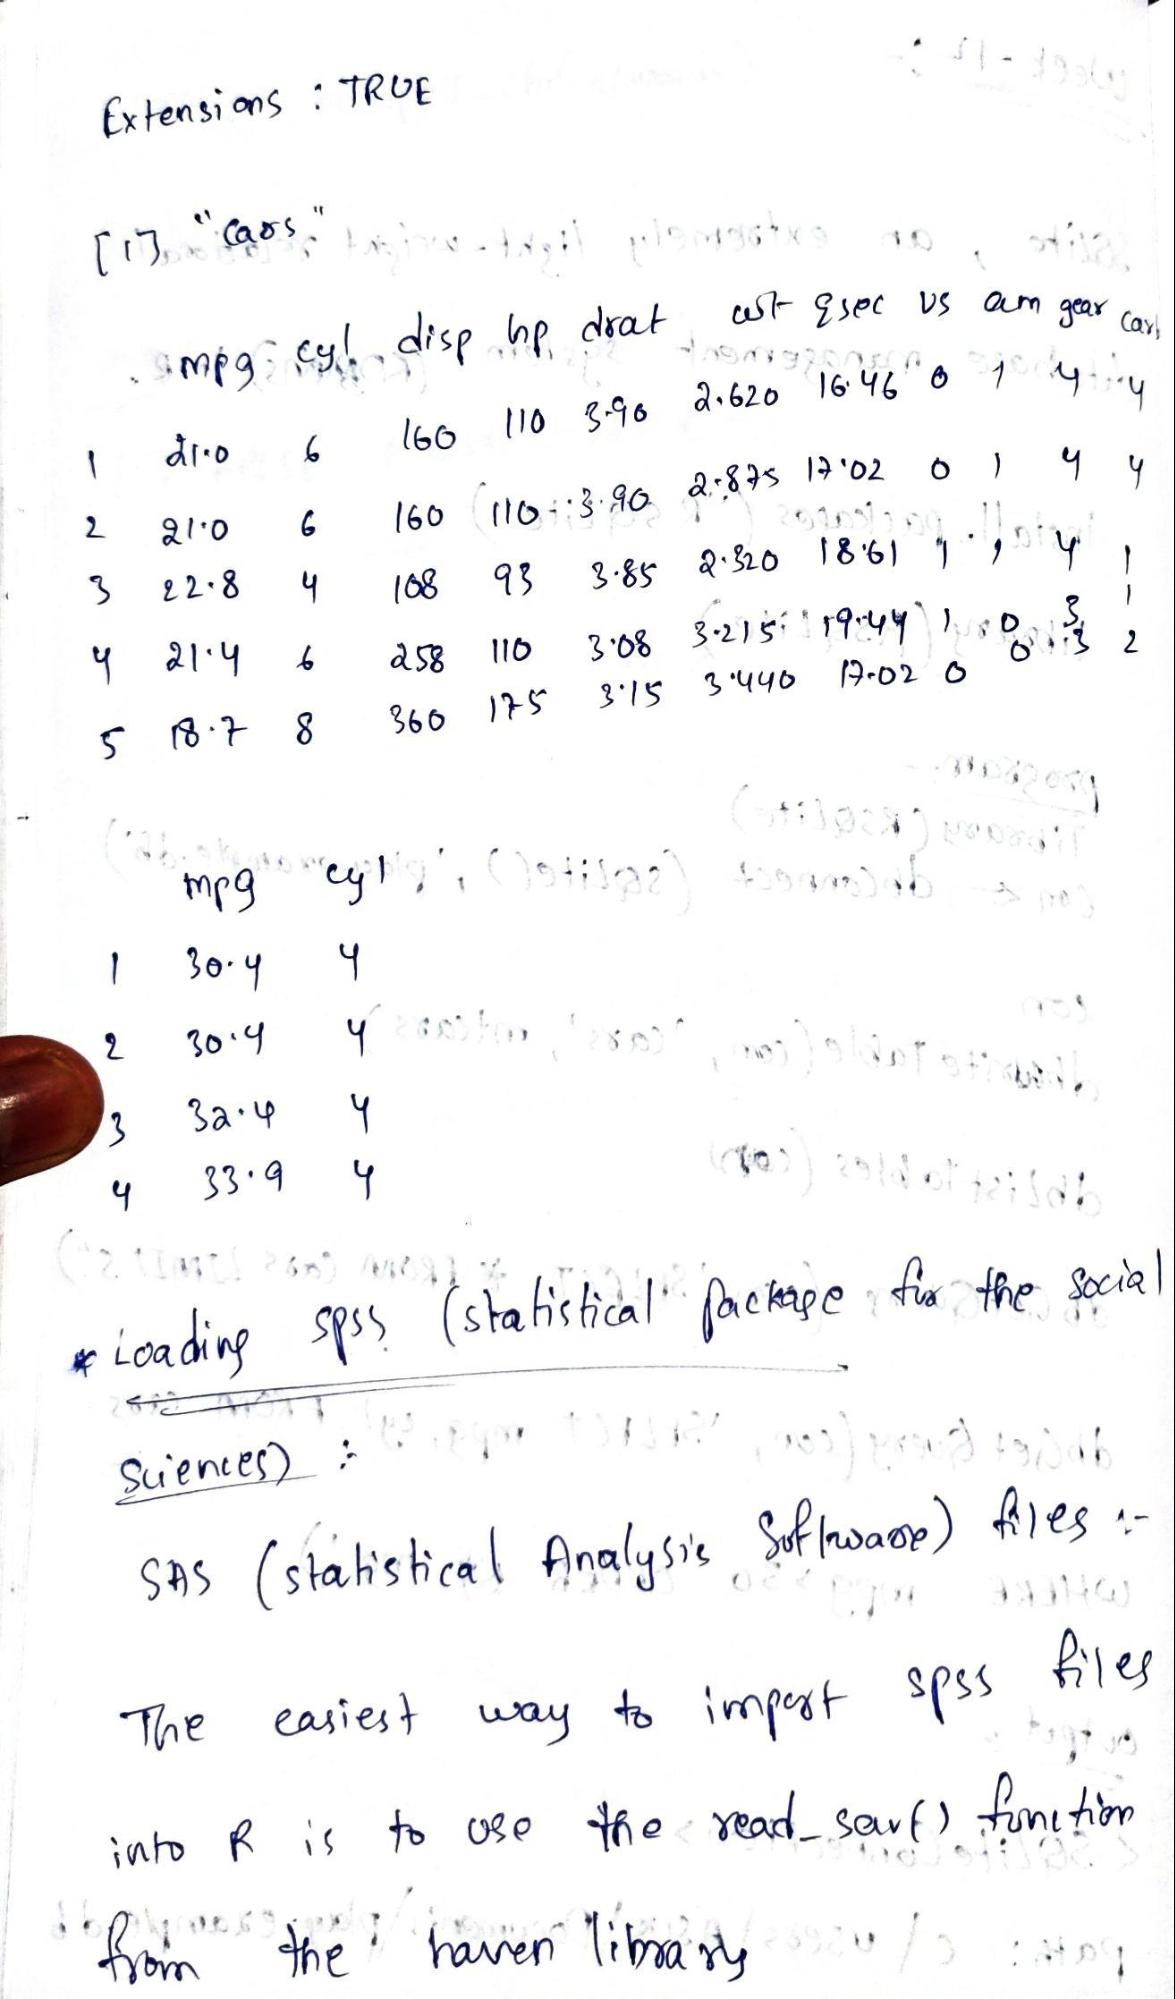 Extensions : TRUE
[1] "cars"
mpg cyl disp hp drat wt qsec vs am gear carb
1 21.0 6 160 110 3.90 2.620 16.46 0 1 4 4
2 21.0 6 160 110 3.90 2.875 17.02 0 1 4 4
3 22.8 4 108 93 3.85 2.320 18.61 1 1 4 1
4 21.4 6 258 110 3.08 3.215 19.44 1 0 3 1
5 18.7 8 360 175 3.15 3.440 17.02 0 0 3 2
mpg cyl
1 30.4 4
2 30.4 4
3 32.4 4
4 33.9 4
* Loading spss (statistical package for the social
sciences) :-
SAS (statistical Analysis Software) files :-
The easiest way to import spss files
into R is to use the read_sav() function
from the haven library